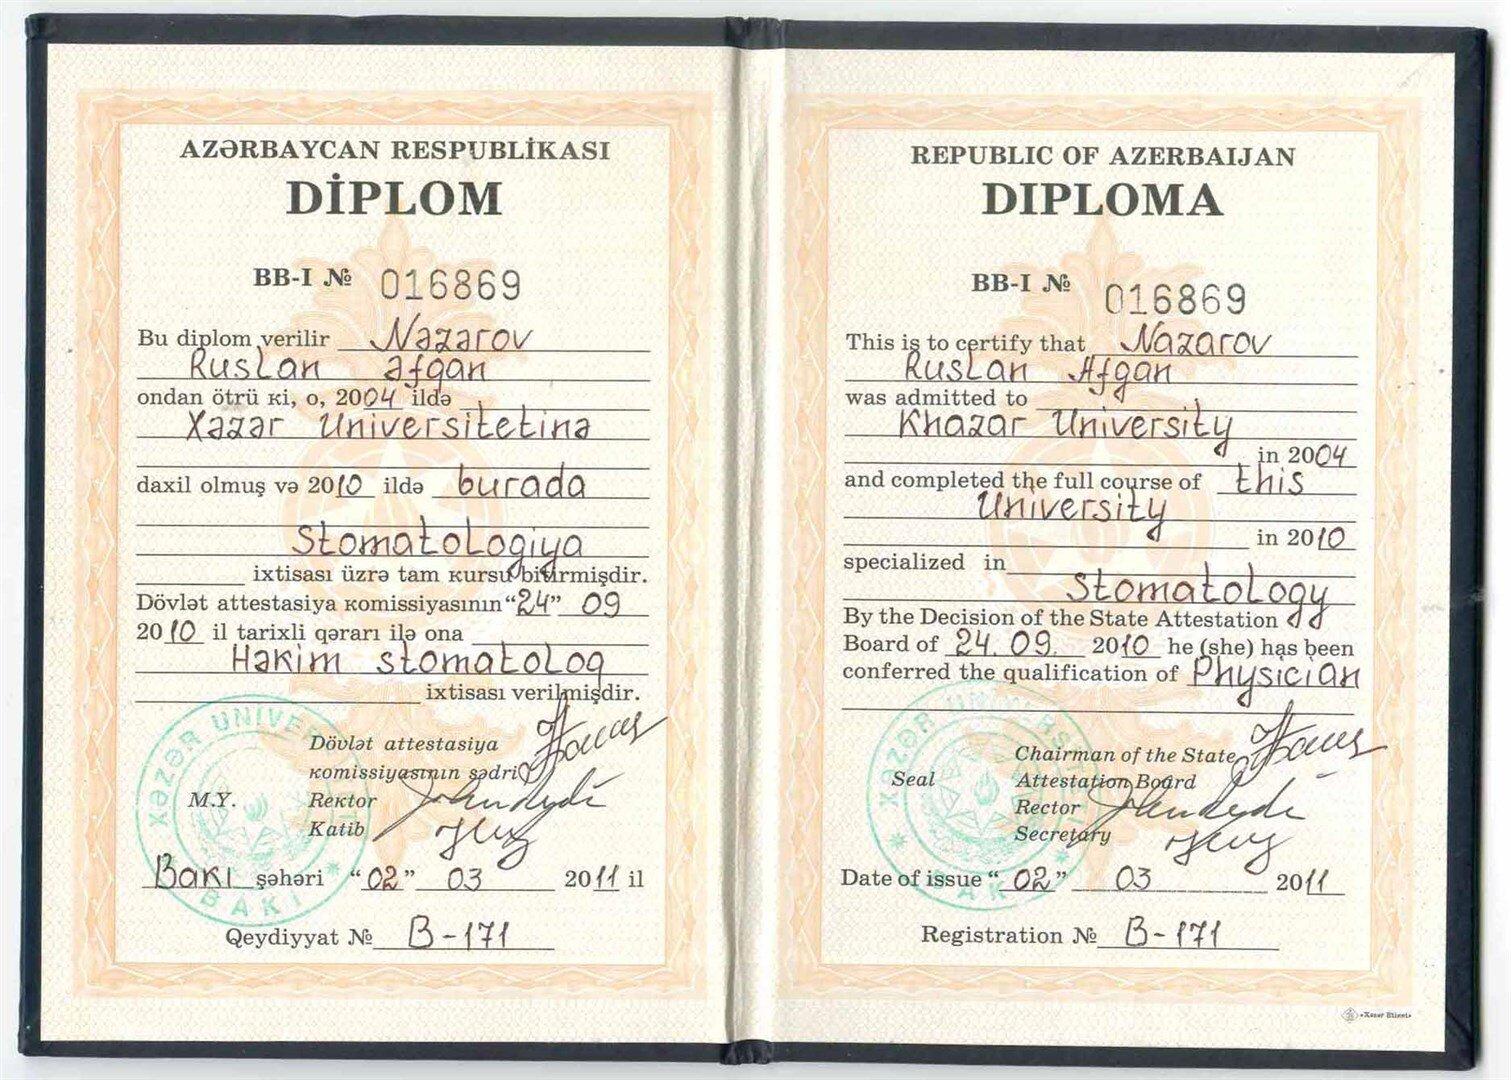 AZƏRBAYCAN RESPUBLİKASI
DİPLOM
BB-I № 016869
Bu diplom verilir Nəzərov
Ruslan Əfqan
ondan ötrü ki, o, 2004 ildə
Xəzər Universitetinə
daxil olmuş və 2010 ildə burada
Stomatologiya
ixtisası üzrə tam kursu bitirmişdir.
Dövlət attestasiya komissiyasının “24” 09
2010 il tarixli qərarı ilə ona
Həkim stomatoloq
ixtisası verilmişdir.
Dövlət attestasiya
komissiyasının sədri
M.Y. Rektor
Katib
Bakı şəhəri “02” 03 2011 il
Qeydiyyat № B-171
XƏZƏR UNIVERSITETI
BAKI
REPUBLIC OF AZERBAIJAN
DIPLOMA
BB-I № 016869
This is to certify that Nazarov
Ruslan Afgan
was admitted to
Khazar University
in 2004
and completed the full course of this
University
in 2010
specialized in
Stomatology
By the Decision of the State Attestation
Board of 24. 09. 2010 he (she) has been
conferred the qualification of Physician
Chairman of the State
Seal Attestation Board
Rector
Secretary
Date of issue “02” 03 2011
Registration № B-171
XƏZƏR UNIVERSITETI
BAKI